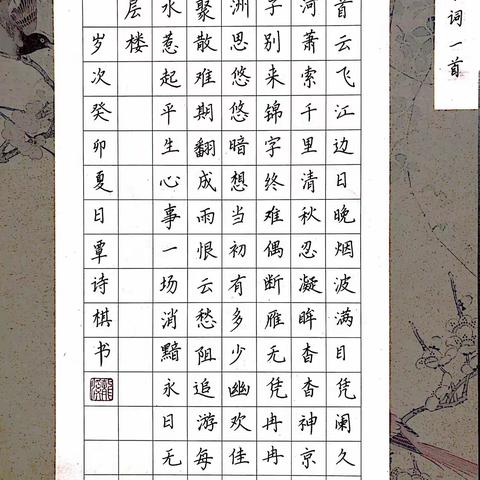 词一首
首云飞江边日晚烟波满目凭阑久
河萧索千里清秋忍凝眸杳杳神京
子别来锦字终难偶断雁无凭冉冉
洲思悠悠暗想当初有多少幽欢佳
聚散难期翻成雨恨云愁阻追游每
水惹起平生心事一场消黯永日无
层楼
岁次癸卯夏日覃诗棋书